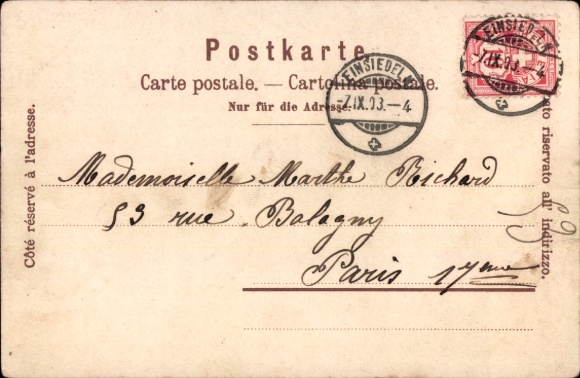 Postkarte.
Carte postale. — Cartolina postale.
Nur für die Adresse.
EINSIEDELN
-7.IX.03.-4
EINSIEDELN
-7.IX.03.-4
Côté réservé à l'adresse.
Lato riservato all' indirizzo.
Mademoiselle Marthe Richard
53 rue Balagny
Paris 17eme